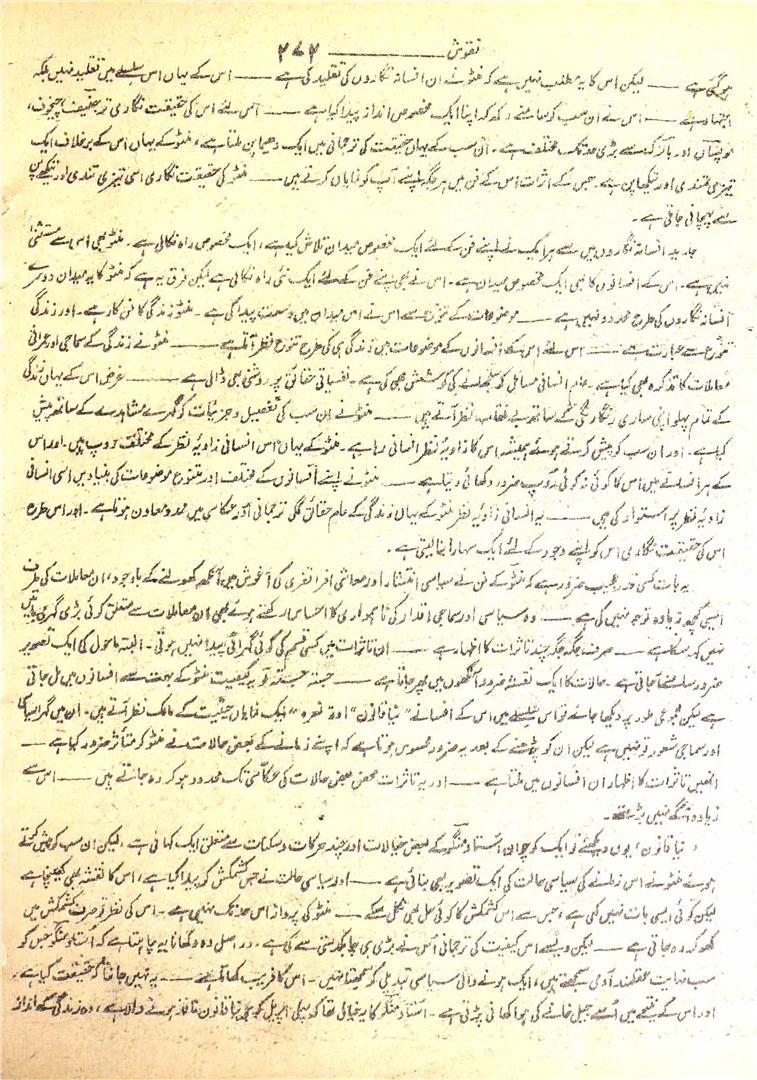 نقوش ـــــــــ ۲۷۲
ہو گئی ہے ـــــ لیکن اس کا یہ مطلب نہیں ہے کہ منٹو نے ان افسانہ نگاروں کی تقلید کی ہے ـــــ اس کے یہاں اس سلسلے میں تقلید نہیں بلکہ
اجتہاد ہے ـــــ اس نے ان سب کو سامنے رکھ کر اپنا ایک مخصوص انداز پیدا کیا ہے ـــــ اس لئے اس کی حقیقت نگاری تو چیخوف،
موپساں اور بالزک سے بڑی حد تک مختلف ہے۔ ان سب کے یہاں حقیقت کی ترجمانی میں ایک دھیما پن ملتا ہے، منٹو کے یہاں اس کے برخلاف ایک
تیزی تندی اور تیکھا پن ہے۔ جس کے اثرات اس کے فن میں ہر جگہ اپنے آپ کو نمایاں کرتے ہیں ـــــ منٹو کی حقیقت نگاری اسی تیزی تندی اور تیکھے پن
سے پہچانی جاتی ہے۔
جدید افسانہ نگاروں میں سے ہر ایک نے اپنے فن کے لئے ایک مخصوص میدان تلاش کیا ہے، ایک مخصوص راہ نکالی ہے۔ منٹو بھی اس سے مستثنیٰ
نہیں ہے۔ اس کے افسانوں کا بھی ایک مخصوص میدان ہے۔ اس نے بھی اپنے فن کے لئے ایک نئی راہ نکالی ہے لیکن فرق یہ ہے کہ منٹو کا یہ میدان دوسرے
افسانہ نگاروں کی طرح محدود نہیں ہے ـــــ موضوعات کے تنوع سے اس نے اس میدان میں وسعت پیدا کی ہے۔ منٹو زندگی کا فن کار ہے۔ اور زندگی
تنوع سے عبارت ہے ـــــ اس لئے اس کے افسانوں کے موضوعات میں زندگی ہی کی طرح تنوع نظر آتا ہے ـــــ منٹو نے زندگی کے سماجی اور عمرانی
معاملات کا تذکرہ بھی کیا ہے۔ عام انسانی مسائل کو سلجھانے کی کوشش بھی کی ہے۔ نفسیاتی حقائق پر روشنی بھی ڈالی ہے ـــــ غرض اس کے یہاں زندگی
کے تمام پہلو اپنی ساری رنگا رنگی کے ساتھ بے نقاب نظر آتے ہیں ـــــ منٹو نے ان سب کی تفصیل و جزئیات کو گہرے مشاہدے کے ساتھ پیش
کیا ہے۔ اور ان سب کو پیش کرتے ہوئے ہمیشہ اس کا زاویۂ نظر انسانی رہا ہے۔ منٹو کے یہاں اس انسانی زاویۂ نظر کے مختلف روپ ہیں۔ اور اس
کے ہر افسانے میں اس کا کوئی نہ کوئی روپ ضرور دکھائی دیتا ہے ـــــ منٹو نے اپنے افسانوں کے مختلف اور متنوع موضوعات کی بنیادیں اسی انسانی
زاویۂ نظر پر استوار کی ہیں ـــــ یہ انسانی زاویۂ نظر منٹو کے یہاں زندگی کے عام حقائق کی ترجمانی اور عکاسی میں ممد و معاون ہوتا ہے۔ اور اس طرح
اس کی حقیقت نگاری اس کو اپنے وجود کے لئے ایک سہارا بنا لیتی ہے۔
یہ بات کسی قدر عجیب ضرور ہے کہ منٹو کے فن نے سیاسی انتشار اور معاشی افراتفری کی آغوش میں آنکھ کھولنے کے باوجود، ان معاملات کی طرف
ایسی کچھ زیادہ توجہ نہیں کی ہے ـــــ وہ سیاسی اور سماجی اقدار کی ناہمواری کا احساس رکھتے ہوئے بھی ان معاملات سے متعلق کوئی بڑی گہری باتیں
نہیں کہہ سکا ہے ـــــ صرف جگہ جگہ چند تاثرات کا اظہار ہے ـــــ ان تاثرات میں کسی قسم کی کوئی گہرائی پیدا نہیں ہوتی۔ البتہ ماحول کی ایک تصویر
ضرور سامنے آ جاتی ہے۔ حالات کا ایک نقشہ ضرور آنکھوں میں پھر جاتا ہے ـــــ جستہ جستہ تو یہ کیفیت منٹو کے بہت سے افسانوں میں مل جاتی
ہے لیکن مجموعی طور پر دیکھا جائے تو اس سلسلے میں اس کے افسانے "نیا قانون" اور "نعرہ" ایک نمایاں حیثیت کے مالک نظر آتے ہیں۔ ان میں گہرا سیاسی
اور سماجی شعور تو نہیں ہے لیکن ان کو پڑھنے کے بعد یہ ضرور محسوس ہوتا ہے کہ اپنے زمانے کے بعض حالات نے منٹو کو متأثر ضرور کیا ہے ـــــ
انھیں تاثرات کا اظہار ان افسانوں میں ملتا ہے ـــــ اور یہ تاثرات محض بعض حالات کی عکاسی تک محدود ہو کر رہ جاتے ہیں ـــــ اس سے
زیادہ آگے نہیں بڑھتے۔
'نیا قانون' یوں دیکھئے تو ایک کوچوان استاد منگو کے بعض خیالات اور چند حرکات و سکنات سے متعلق ایک کہانی ہے، لیکن ان سب کو پیش کرتے
ہوئے منٹو نے اس زمانے کی سیاسی حالت کی ایک تصویر بھی بنائی ہے ـــــ اور سیاسی حالت نے جس کشمکش کو پیدا کیا ہے، اس کا نقشہ بھی کھینچا ہے
لیکن کوئی ایسی بات نہیں کہی ہے، جس سے اس کشمکش کا کوئی حل بھی نکل سکے ـــــ منٹو کی پرواز اس حد تک نہیں ہے۔ اس کی نظر تو صرف کشمکش میں
کھو کر رہ جاتی ہے ـــــ لیکن ویسے اس کیفیت کی ترجمانی اس نے بڑی ہی چابکدستی سے کی ہے۔ دراصل وہ دکھانا یہ چاہتا ہے کہ استاد منگو جس کو
سب نہایت عقلمند آدمی سمجھتے ہیں، ایک ہونے والی سیاسی تبدیلی کو سمجھتا نہیں۔ اس کا فریب کھاتا ہے ـــــ یہ نہیں جانتا کہ حقیقت کیا ہے۔
اور اس کے نتیجے میں اُسے جیل خانے کی ہوا کھانی پڑتی ہے۔ استاد منگو کا یہ خیال تھا کہ پہلی اپریل کو جو نیا قانون نافذ ہونے والا ہے، وہ زندگی کے انداز